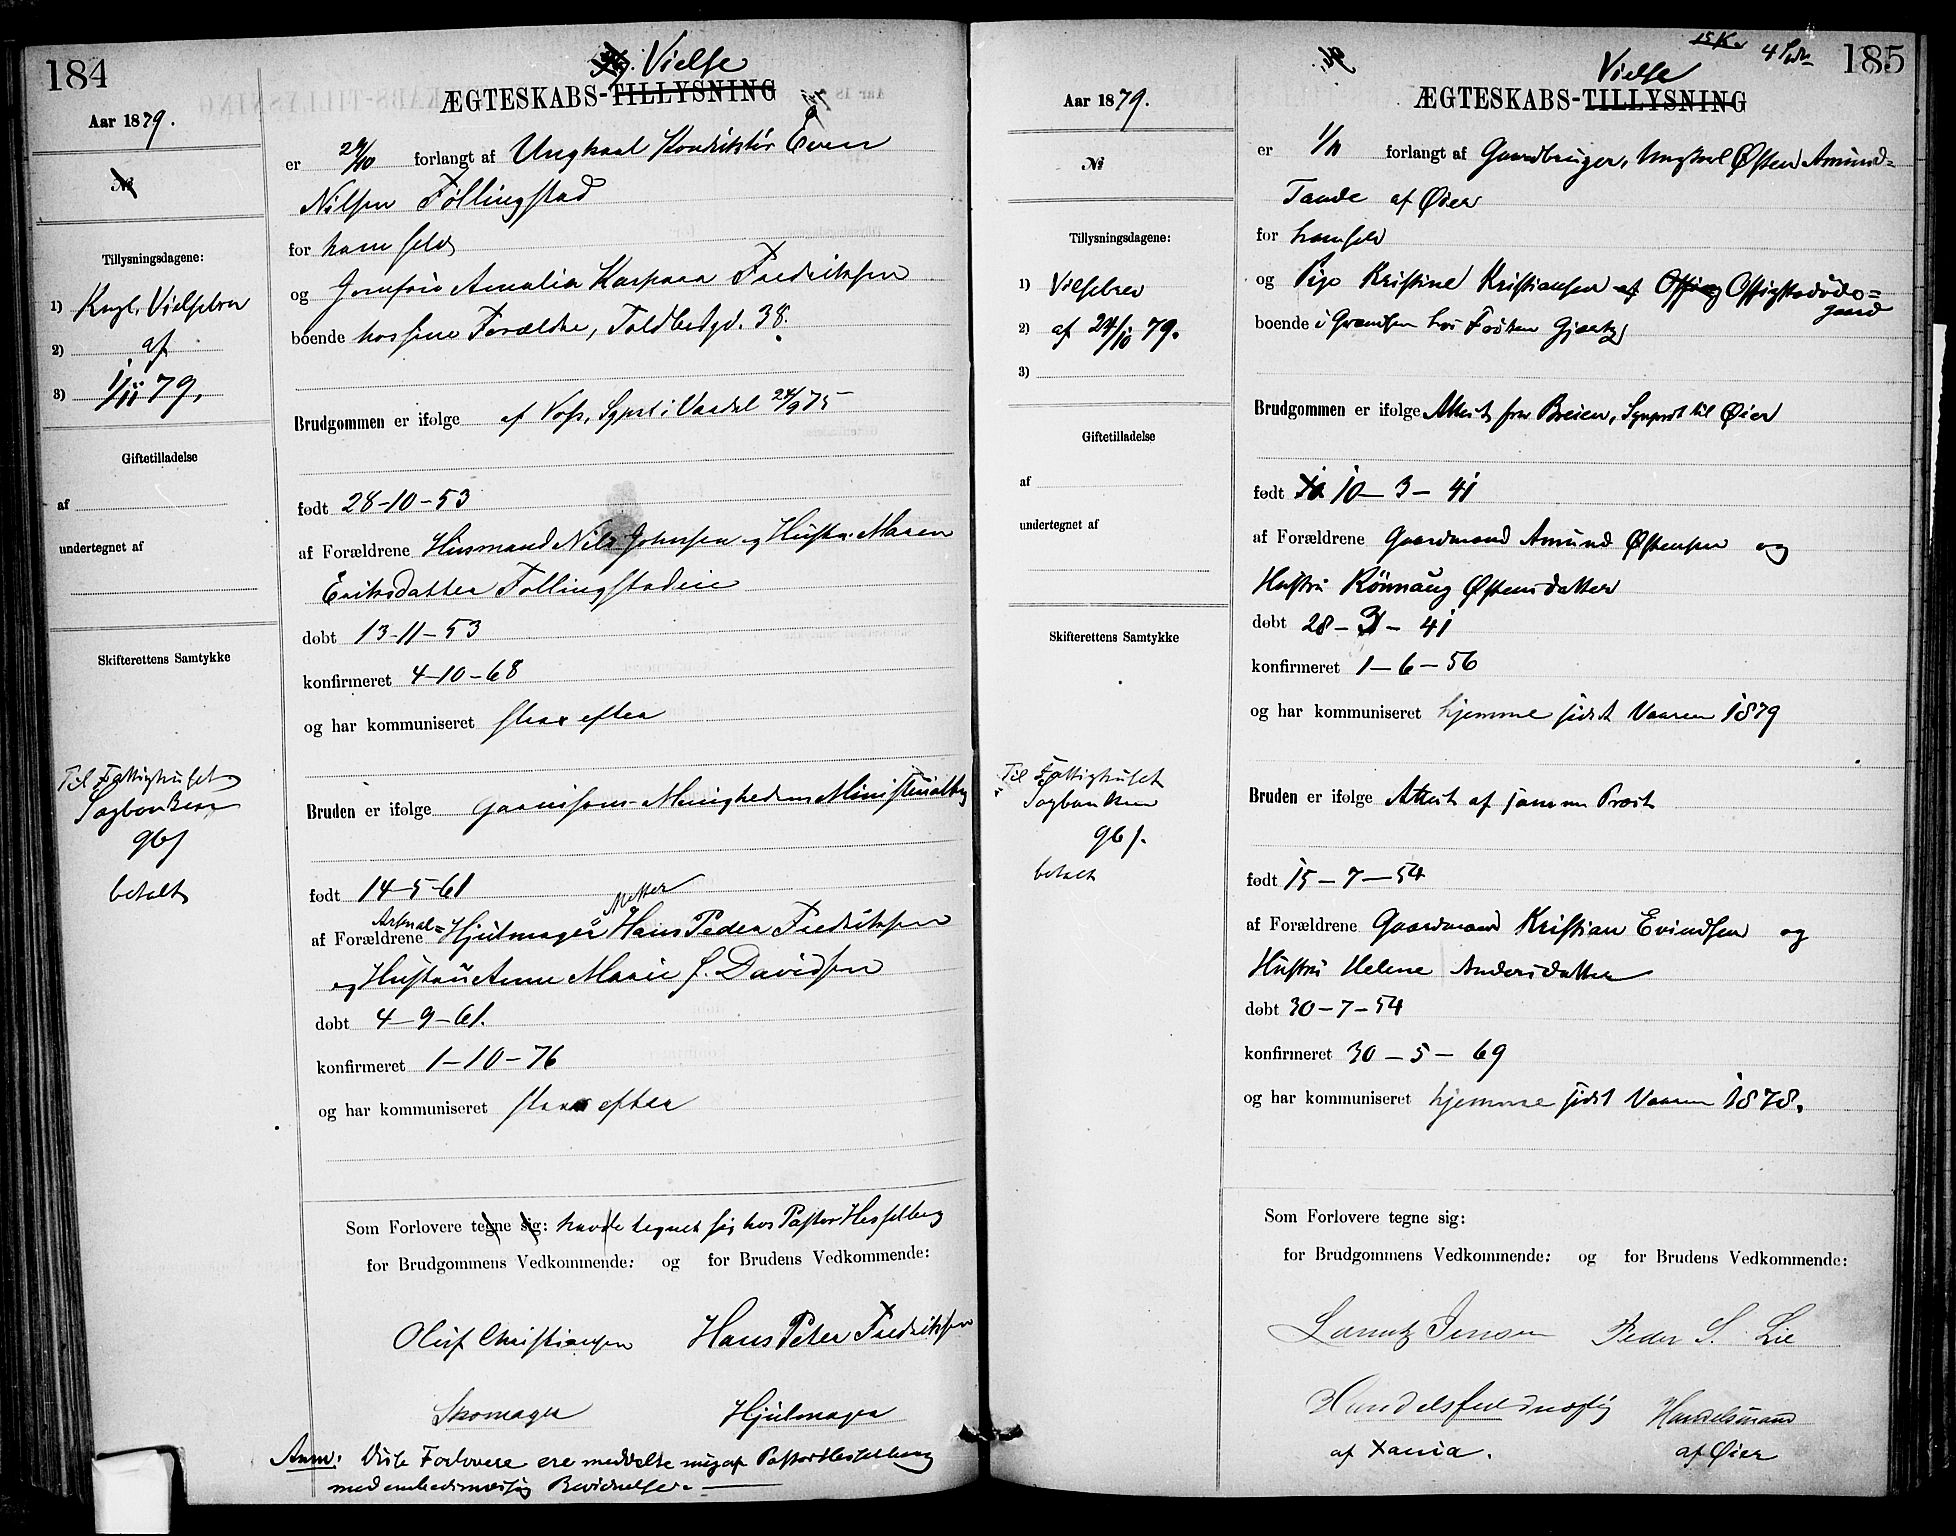 184
Vielse
ÆGTESKABS-TILLYSNING
Aar 1879.
№
er 29/10 forlangt af Ungkarl Konduktør Even
Nilsen Föllingstad
for ham selv
og Jomfru Amalia Kaspara Fredriksen
boende hos sine Forældre, Toldbodgd. 38.
Tillysningsdagene:
1) Kngl. Vielsebrev
2) af
3) 1/11 79,
Brudgommen er ifølge af Voss, Sgprst i Vardal 24/9 75
Giftetilladelse
af
undertegnet af
født 28-10-53
af Forældrene Husmand Nils Johnsen og Hustru Maren
Eriksdatter Föllingstadeie
døbt 13-11-53
Skifterettens Samtykke
konfirmeret 4-10-68
og har kommuniseret strax efter
Til Fattighuset
Sagbanken
96 s
betalt
Bruden er ifølge Garnisons-Menighedens Ministerialbog
født 14-5-61
Mester
Arsenal=
af Forældrene Hjulmager Hans Peder Fredriksen
og Hustru Anne Marie f. Davidsen
døbt 4-9-61.
konfirmeret 1-10-76
og har kommuniseret strax efter
Som Forlovere tegne sig: havde tegnet sig hos Pastor Hesselberg
for Brudgommens Vedkommende: og for Brudens Vedkommende:
Oluf Christiansen Hans Peter Fredriksen
Skomager Hjulmager
Anm: Disse Forlovere ere meddelte mig af Pastor Hesselberg
med embedsmæssig Bevidnelse.
15 Kr 4 Sdr
185
Vielse
ÆGTESKABS-TILLYSNING
Aar 1879.
№
er 1/11 forlangt af Gaardbruger, Ungkarl Østen Amund=
Tande af Øier
for ham selv
og Pige Kristine Kristiansen af
boende i Grændsen hos Frøken
Tillysningsdagene:
1) Vilsebrev
2) af 24/10 79.
3)
Brudgommen er ifølge Attest fra Breien, Sgnprst til Øier
Giftetilladelse
af
undertegnet af
født 10-3-41
af Forældrene Gaardmand Amund Østensen og
Hustru Rönnaug Østensdatter
døbt 28-3-41
Skifterettens Samtykke
konfirmeret 1-6-56
og har kommuniseret hjemme sidst Vaaren 1879
Til Fattighuset
Sagbanken
96 s.
betalt
Bruden er ifølge Attest af samme Præst
født 15-7-54
af Forældrene Gaardmand Kristian Evindsen og
Hustru Helene Andersdatter
døbt 30-7-54
konfirmeret 30-5-69
og har kommuniseret hjemme sidst Vaaren 1878.
Som Forlovere tegne sig:
for Brudgommens Vedkommende: og for Brudens Vedkommende:
Lauritz Jensen Peder S. Lie
Handelsfuldmægtig Handelsmand
af Xania. af Øier